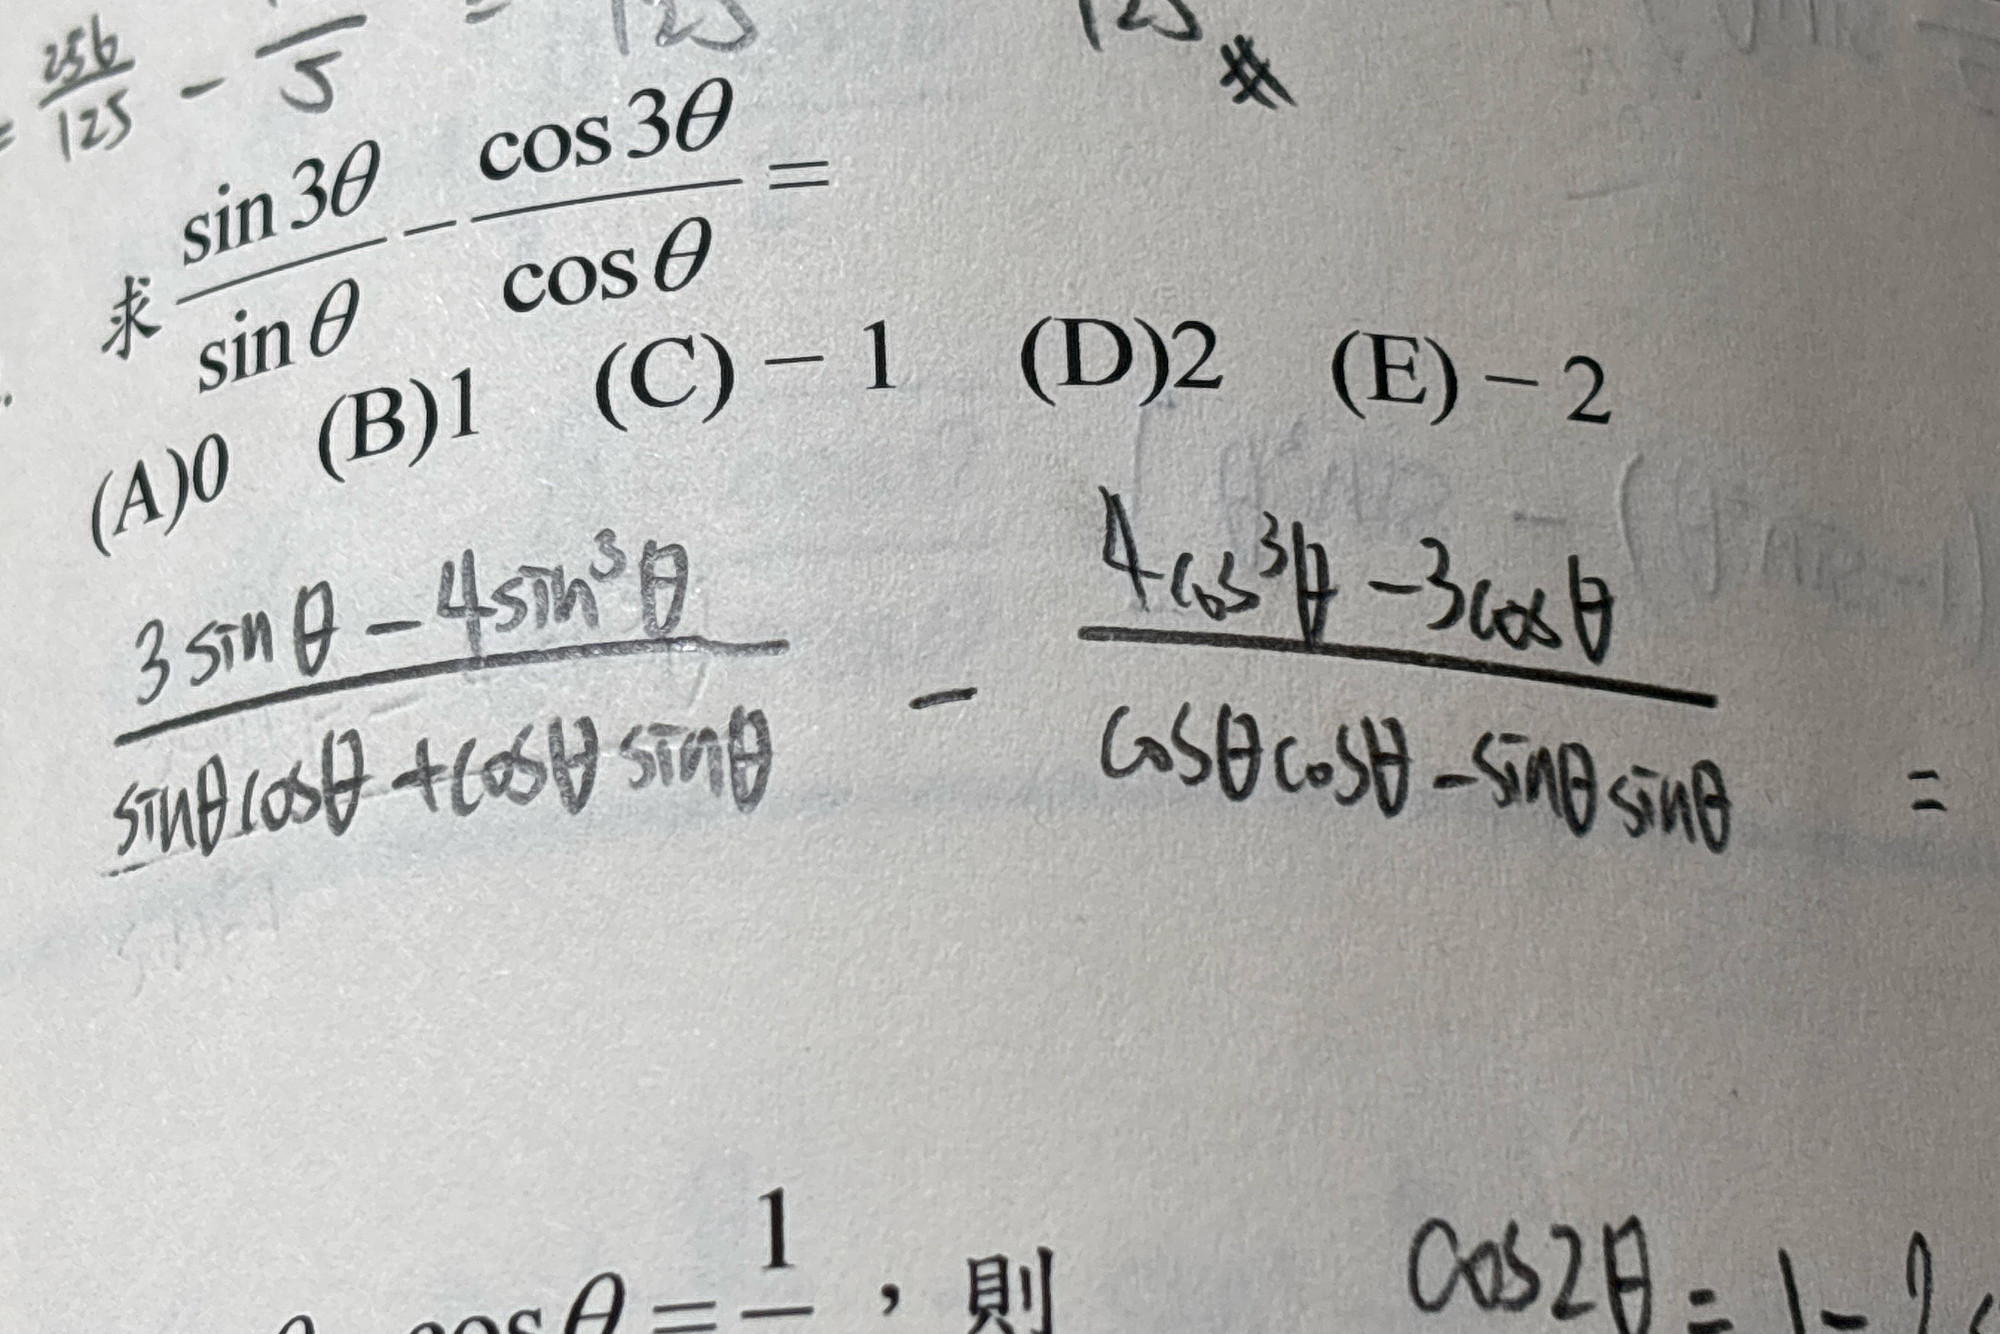 = 256/125 - /5 = 125 125 #
求 sin3θ/sinθ - cos3θ/cosθ =
(A)0 (B)1 (C)-1 (D)2 (E)-2
3sinθ-4sin³θ/sinθcosθ+cosθsinθ - 4cos³θ-3cosθ/cosθcosθ-sinθsinθ =
cosθ=1/ ，則 cos2θ=1-2